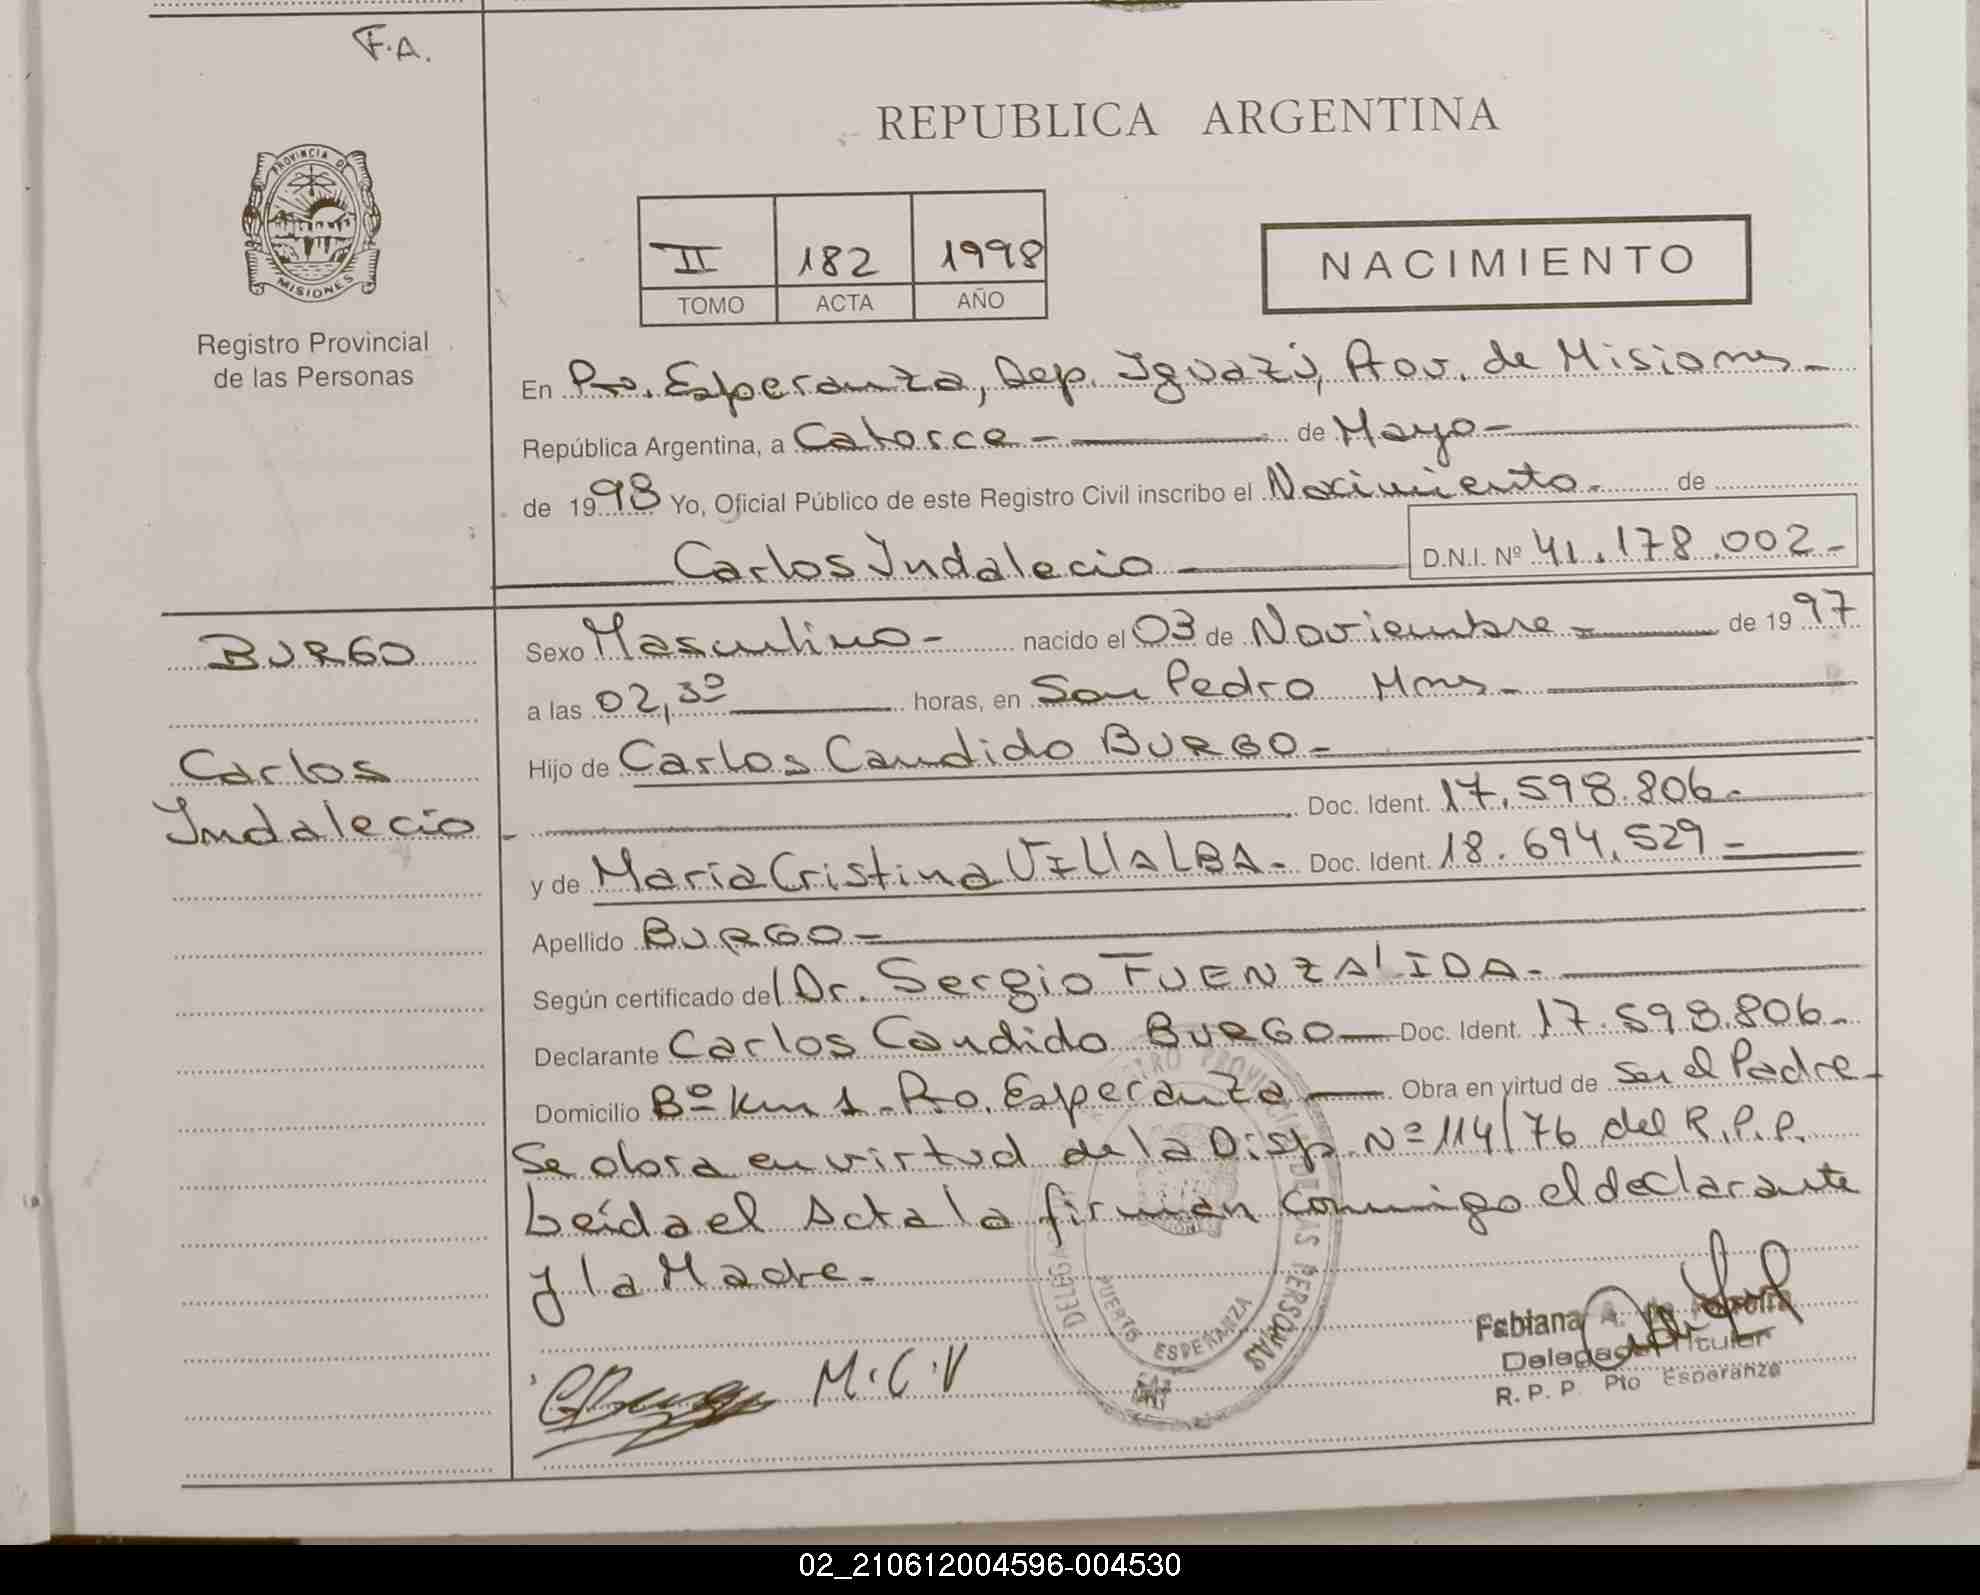 F.A.
REPUBLICA ARGENTINA
PROVINCIA DE
MISIONES
II 182 1998
TOMO ACTA AÑO
NACIMIENTO
Registro Provincial
de las Personas
En Pto. Esperanza, Dep. Iguazú, Prov. de Misiones-
República Argentina, a Catorce - de Mayo-
de 1998 Yo, Oficial Público de este Registro Civil inscribo el Nacimiento- de
Carlos Indalecio - D.N.I. Nº 41.178.002-
BURGO
Carlos
Indalecio
Sexo Masculino- nacido el 03 de Noviembre - de 1997
a las 02,30 horas, en San Pedro Mnes-
Hijo de Carlos Candido BURGO-
Doc. Ident. 17.598.806-
y de María Cristina VILLALBA- Doc. Ident. 18.694.529-
Apellido BURGO-
Según certificado del Dr. Sergio FUENZALIDA-
Declarante Carlos Candido BURGO- Doc. Ident. 17.598.806-
Domicilio Bº Km 1- Pto. Esperanza- Obra en virtud de Ser el Padre-
Se obra en virtud de la Disp. Nº 114/76 del R.P.P.
Leída el Acta la firman conmigo el declarante
y la Madre-
REGISTRO PROVINCIAL DE LAS PERSONAS
PUERTO ESPERANZA
M.C.V
Fabiana A. de
Delegada Titular
R. P. P. Pto Esperanza
02_210612004596-004530